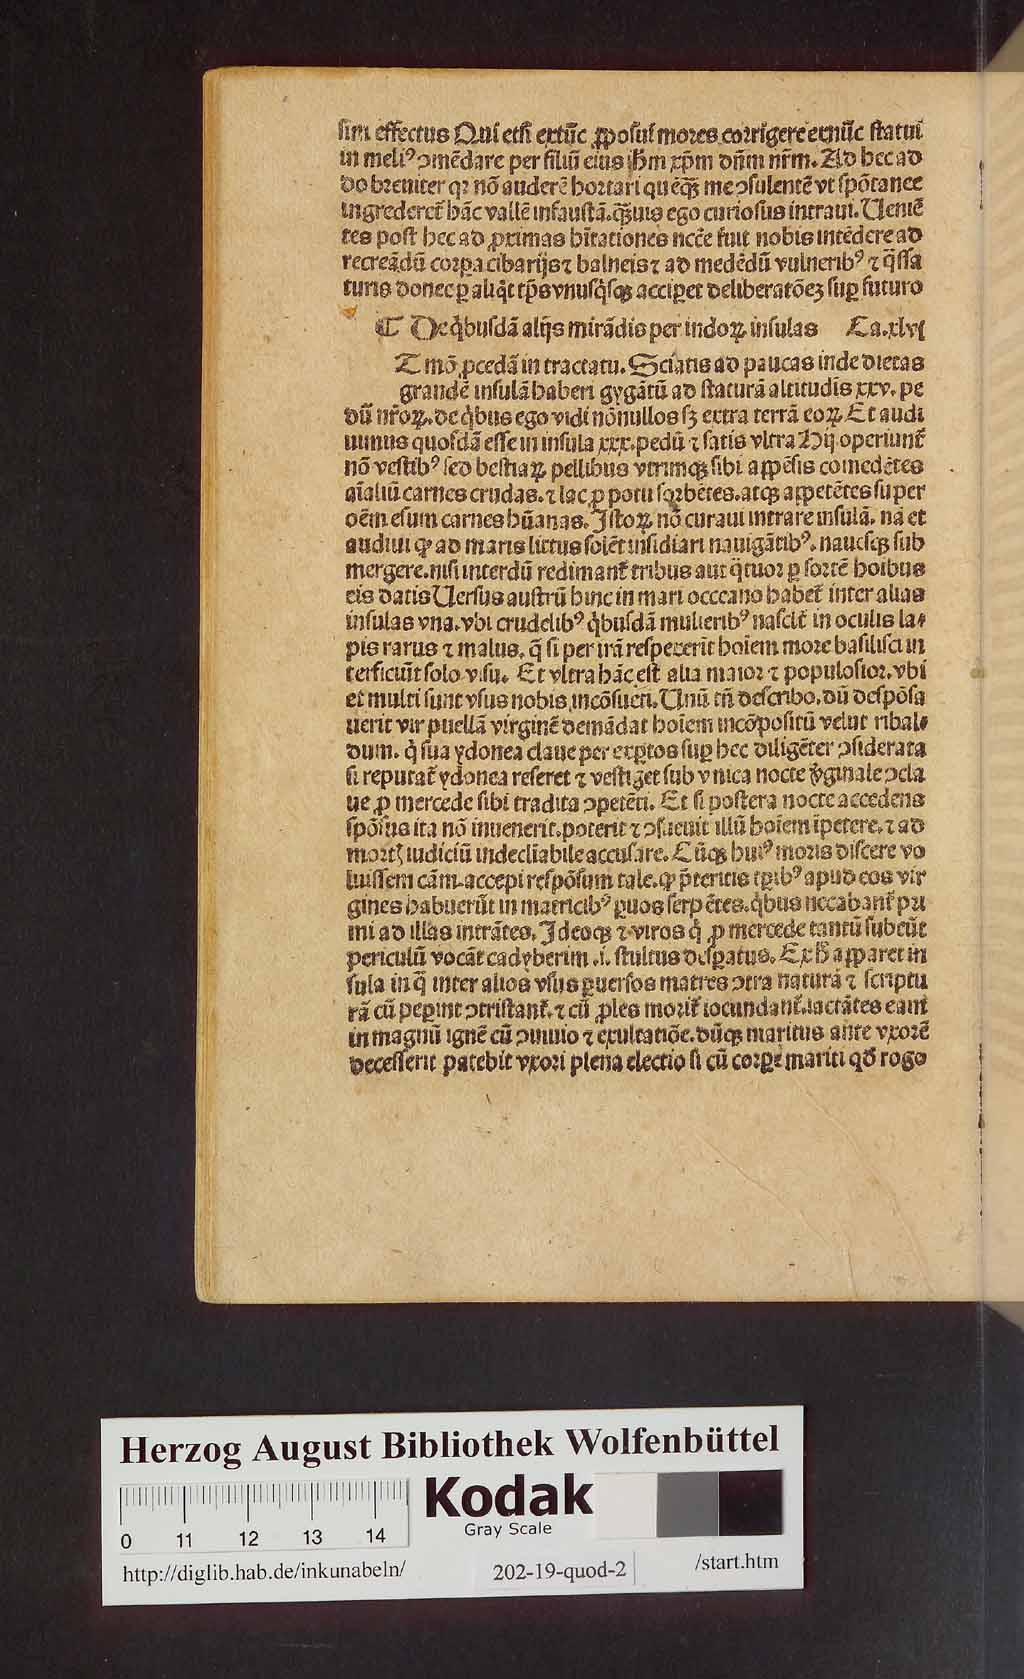 sim effectus Qui etsi extūc ꝓposui mores corrigere etnūc statui
in meliꝰ ↄmēdare per filiū eius ihm xp̄m dn̄m nr̄m. Ad hec ad
do breuiter qꝛ nō auderē hortari quēq̄ꝫ me ↄsulentē vt spōtanee
ingrederet᷑ hāc vallē infaustā. q̄ꝫuis ego curiosus intraui. Ueniē
tes post hec ad ꝓximas hītationes necc̄e fuit nobis intēdere ad
recreādū corpa cibarijs ⁊ balneis ⁊ ad medēdū vulneribꝰ ⁊ q̄ssa
turis donec ꝑ aliq̄t tp̄s vnusq̄sqꝫ acciperet deliberatōeꝫ sup futuro
¶ De q̇busdā alijs mirādis per indoꝝ insulas Ca.xlvi
T mō ꝓcedā in tractatu. Sciatis ad paucas inde dietas
grandē insulā haberi gygātū ad staturā altitudis xxv. pe
dū nr̄oꝝ. de q̇bus ego vidi nōnullos sꝫ extra terrā eoꝝ. Et audi
uimus quosdā esse in insula xxx. pedū ⁊ satis vltra Hij operiunt᷑
nō vestibꝰ sed bestiaꝝ pellibus vtrimqꝫ sibi appēsis comedētes
aīaliū carnes crudas. ⁊ lac ꝓ potu sorbētes. atqꝫ appetētes super
oēm esum carnes hūanas. Istoꝝ nō curaui intrare insulā. nā et
audiui ꝙ ad maris littus solēt insidiari nauigātibꝰ. nauesqꝫ sub
mergere. nisi interdū redimant᷑ tribus aut q̄tuor ꝑ sortē hoibus
eis datis Uersus austrū hinc in mari occeano habet᷑ inter alias
insulas vna. vbi crudelibꝰ q̇busdā mulieribꝰ nascit᷑ in oculis la⸗
pis rarus ⁊ malus. q̄ si per irā respexerīt hoīem more basilisci in
terficiūt solo visu. Et vltra hāc est alia maior ⁊ populosior. vbi
et multi sunt vsus nobis incōsueti. Unū tn̄ describo. dū despōsa
uerit vir puellā virginē demādat hoīem incōpositū velut ribal⸗
dum. q̇ sua ydonea claue per expertos sup hec diligēter ↄsiderata
si reputat᷑ ydonea reseret ⁊ vestiget sub vnica nocte v̄ginale ↄcla
ue ꝓ mercede sibi tradita ↄpetēti. Et si postera nocte accedens
spōsus ita nō inuenerit. poterit ⁊ ↄsueuit illū hoīem īpetere. ⁊ ad
mortꝭ iudiciū indeclīabile accusare. Cūqꝫ huiꝰ moris discere vo
luissem cām. accepi respōsum tale. ꝙ p̄teritis tꝑibꝰ apud eos vir
gines habuerūt in matricibꝰ ꝑuos serpētes. q̇bus necabant᷑ pri
mi ad illas intrātes. Ideoqꝫ ⁊ viros q̇ ꝓ mercede tantū subeūt
periculū vocāt cadyberim .i. stultus desꝑatus. Ex h̄ apparet in
sula in q̄ inter alios vsus ꝑuersos matres ↄtra naturā ⁊ scriptu
rā cū pepint ↄtristant᷑. ⁊ cū ꝓles morit᷑ iocundant᷑. iactātes eant᷑
in magnū ignē cū ↄuiuio ⁊ exultatiōe. dūqꝫ maritus ante vxorē
decesserit patebit vxori plena electio si cū corpe mariti qd̄ rogo
Herzog August Bibliothek Wolfenbüttel
0 11 12 13 14
Kodak
Gray Scale
http://diglib.hab.de/inkunabeln/ 202-19-quod-2 /start.htm